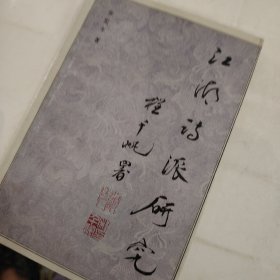 江湖诗派研究
程千帆署